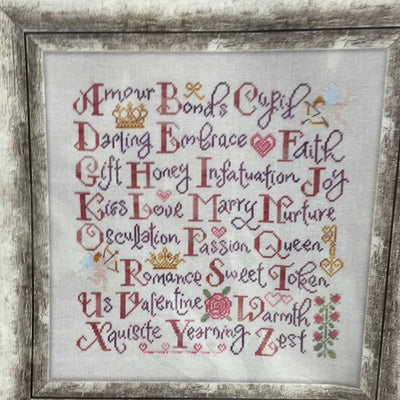 Amour Bonds Cupid
Darling Embrace Faith
Gift Honey Infatuation Joy
Kiss Love Marry Nurture
Oscullation Passion Queen
Romance Sweet Token
Us Valentine Warmth
Xquisite Yearning Zest